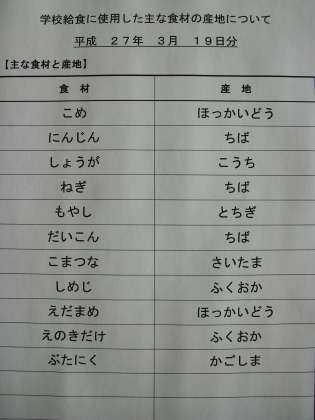 学校給食に使用した主な食材の産地について
平成　２７年　３月　１９日分
【主な食材と産地】
食　材　産　地
こめ　ほっかいどう
にんじん　ちば
しょうが　こうち
ねぎ　ちば
もやし　とちぎ
だいこん　ちば
こまつな　さいたま
しめじ　ふくおか
えだまめ　ほっかいどう
えのきだけ　ふくおか
ぶたにく　かごしま